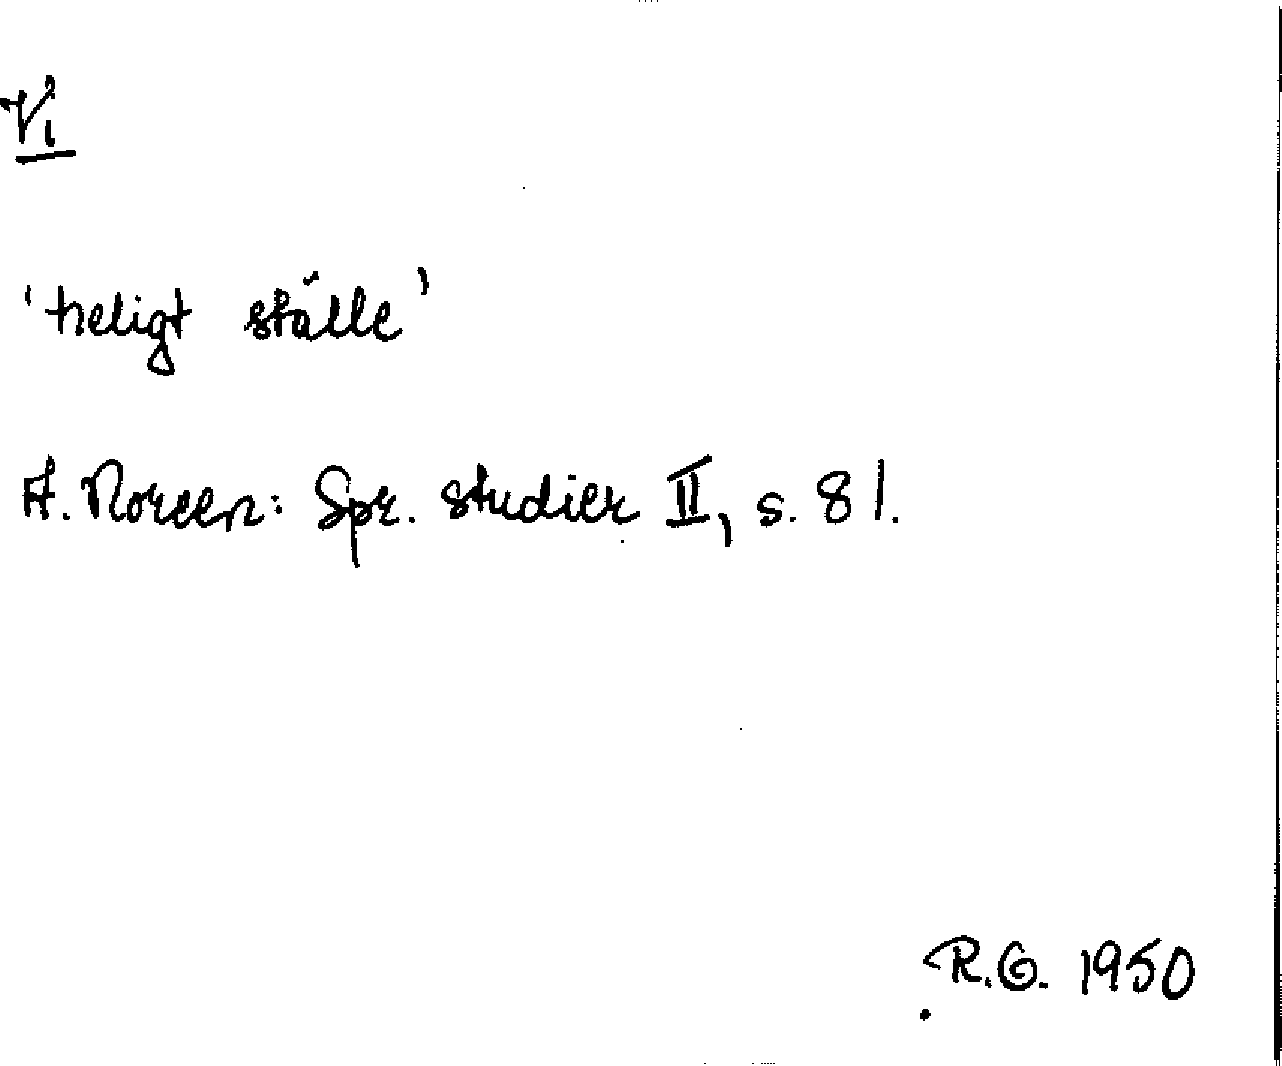 Vi
'heligt ställe'
A. Noreen: Spr. studier II, s. 81.
R.G. 1950